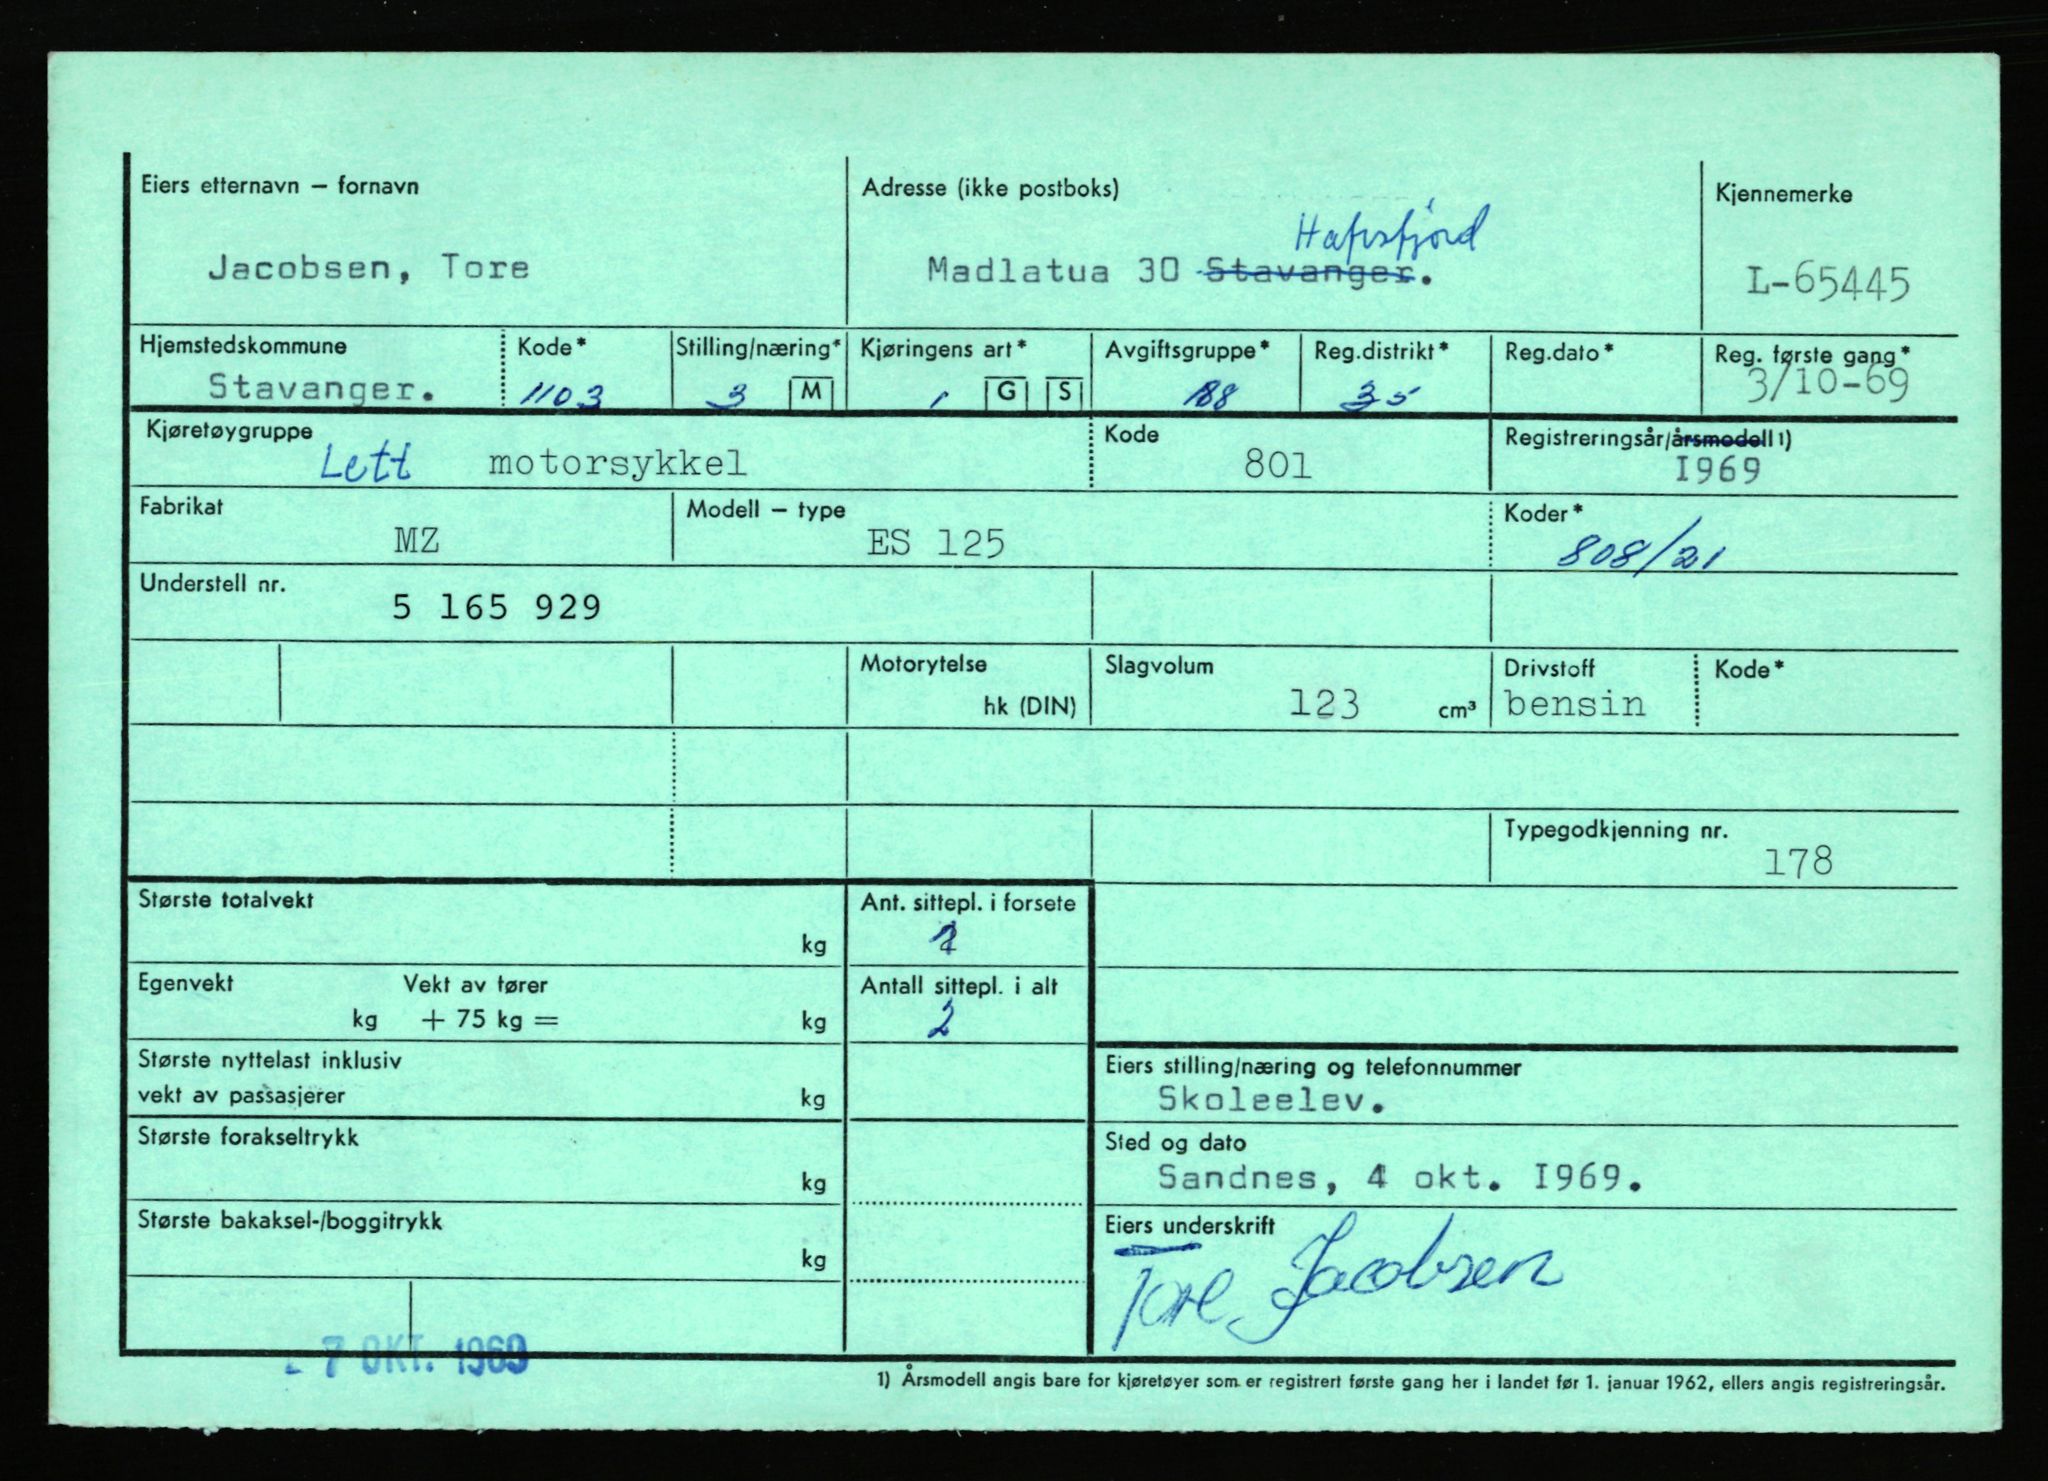 Eiers etternavn – fornavn
Jacobsen, Tore
Adresse (ikke postboks)
Hafrsfjord
Madlatua 30 Stavanger.
Kjennemerke
L-65445
Hjemstedskommune
Stavanger.
Kode*
1103
Stilling/næring*
3 M
Kjøringens art*
1 G S
Avgiftsgruppe*
Reg.distrikt*
35
Reg.dato*
Reg. første gang*
3/10-69
Kjøretøygruppe
Lett motorsykkel
Kode
801
Registreringsår/årsmodell 1)
I969
Fabrikat
MZ
Modell – type
ES 125
Koder*
808/21
Understell nr.
5 165 929
Motorytelse
hk (DIN)
Slagvolum
123 cm³
Drivstoff
bensin
Kode*
Typegodkjenning nr.
178
Største totalvekt
kg
Ant. sittepl. i forsete
Egenvekt Vekt av fører
kg + 75 kg = kg
Antall sittepl. i alt
2
Største nyttelast inklusiv
vekt av passasjerer kg
Største forakseltrykk
kg
Største bakaksel-/boggitrykk
kg
Eiers stilling/næring og telefonnummer
Skoleelev.
Sted og dato
Sandnes, 4 okt. I969.
Eiers underskrift
Tore Jacobsen
- 7 OKT. 1969
1) Årsmodell angis bare for kjøretøyer som er registrert første gang her i landet før 1. januar 1962, ellers angis registreringsår.